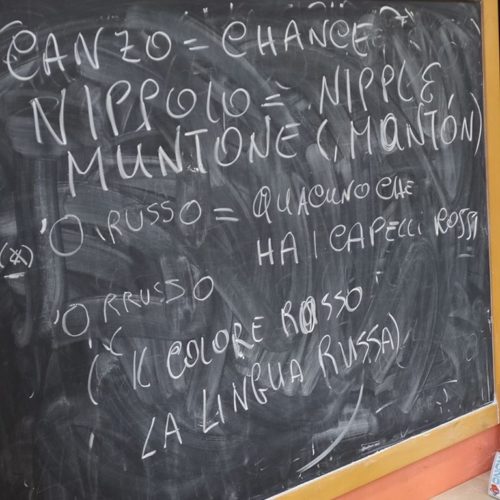 CANZO = CHANCE
NIPPOLO = NIPPLE
MUNTONE (, MONTÓN)
'O RUSSO = QUACUNO CHE
(*) HA I CAPELLI ROSSI
'O RRUSSO
( IL COLORE ROSSO
LA LINGUA RUSSA)